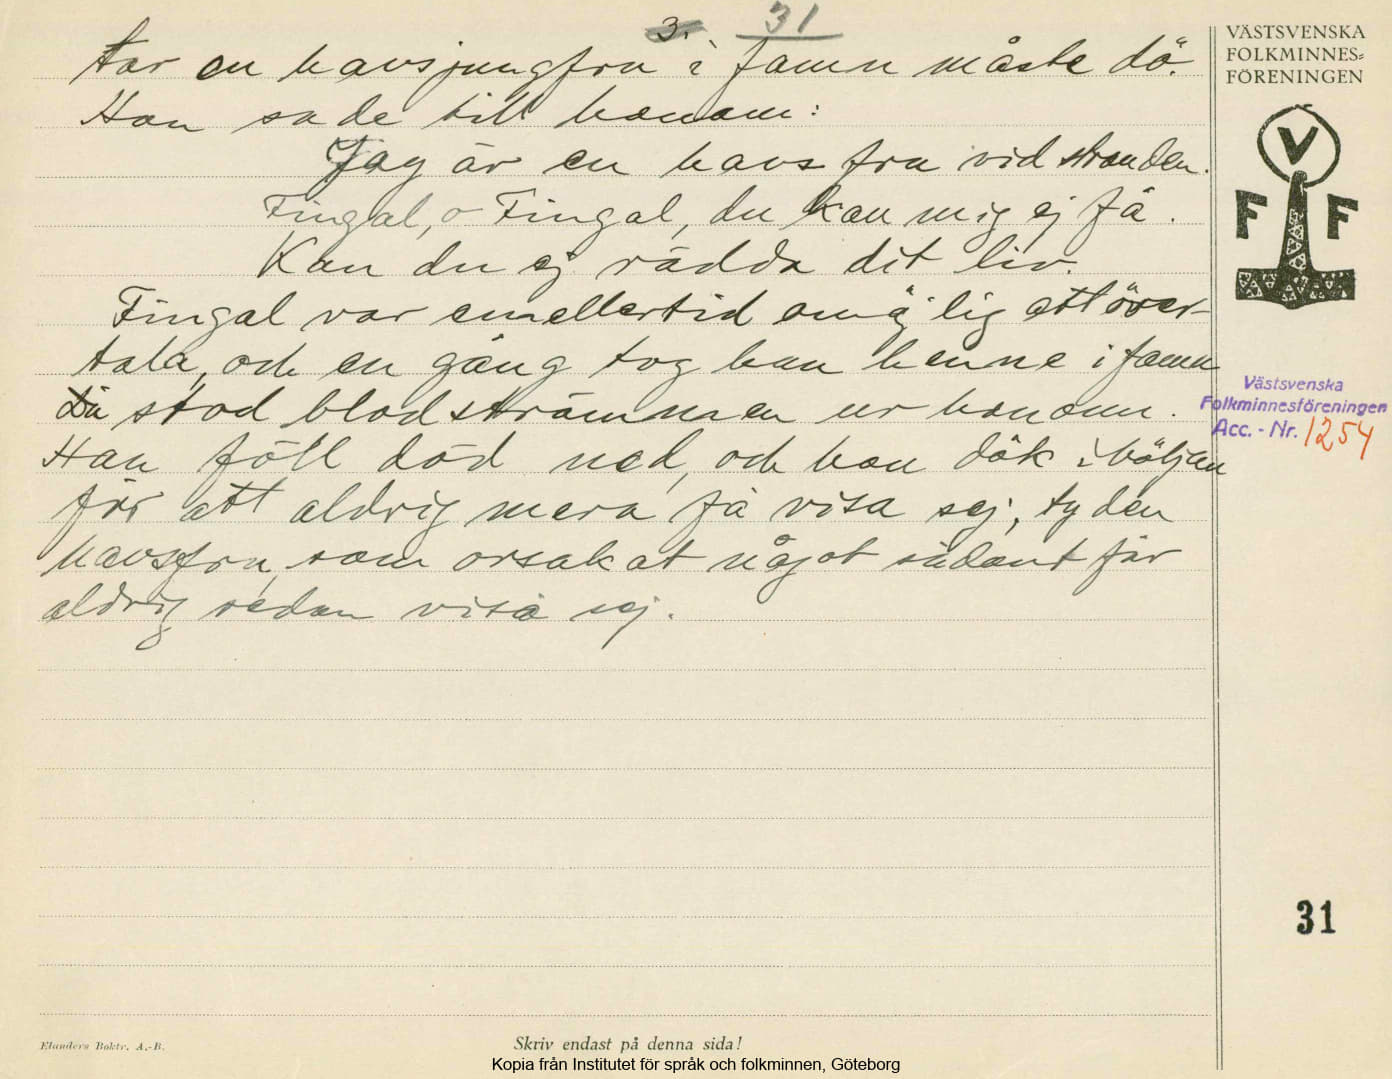 3. 31
tar en havsjungfru i famn måste dö.
Hon sade till honom:
Jag är en havsfru vid stranden.
Fingal, o Fingal, du kan mig ej få.
Kan du ej rädda dit liv.
Fingal var emellertid omöjlig att över-
tala, och en gång tog han henne i famn
Då stod blodströmmen ur honom.
Han föll död ned, och hon dök i böljan
för att aldrig mera få visa sej, ty den
havsfru, som orsakat något sådant får
aldrig sedan visa sej.
VÄSTSVENSKA
FOLKMINNES=
FÖRENINGEN
V
F F
Västsvenska
Folkminnesföreningen
Acc. - Nr. 1254
31
Elanders Boktr. A.-B.
Skriv endast på denna sida!
Kopia från Institutet för språk och folkminnen, Göteborg